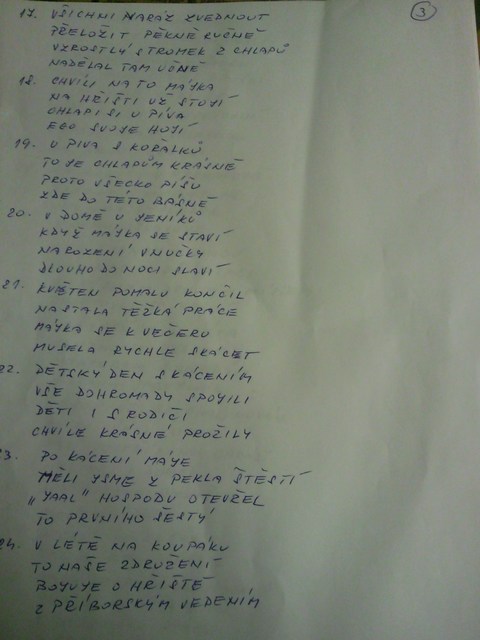 3
17. VŠICHNI NARÁZ ZVEDNOUT
PŘELOŽIT PĚKNĚ RUČNĚ
VZROSTLÝ STROMEK Z CHLAPŮ
NADĚLAL TAM UČNĚ
18. CHVÍLI NATO MÁJKA
NA HŘIŠTI UŽ STOJÍ
CHLAPI SI U PIVA
EGO SVOJE HOJÍ
19. U PIVA S KOŘALKŮ
TO JE CHLAPŮM KRÁSNĚ
PROTO VŠECKO PÍŠU
ZDE DO TÉTO BÁSNĚ
20. V DOMĚ U JENÍKŮ
KDYŽ MÁJKA SE STAVÍ
NAROZENÍ VNUČKY
DLOUHO DO NOCI SLAVÍ
21. KVĚTEN POMALU KONČIL
NASTALA TĚŽKÁ PRÁCE
MÁJKA SE K VEČERU
MUSELA RYCHLE SKÁCET
22. DĚTSKÝ DEN S KÁCENÍM
VŠE DOHROMADY SPOJILI
DĚTI I S RODIČI
CHVÍLE KRÁSNÉ PROŽILY
23. PO KÁCENÍ MÁJE
MĚLI JSME Z PEKLA ŠTĚSTÍ
„JAAL" HOSPODU OTEVŘEL
TO PRVNÍHO ŠESTÝ
24. V LÉTĚ NA KOUPÁKU
TO NAŠE ZDRUŽENÍ
BOJUJE O HŘIŠTĚ
Z PŘÍBORSKÝM VEDENÍM